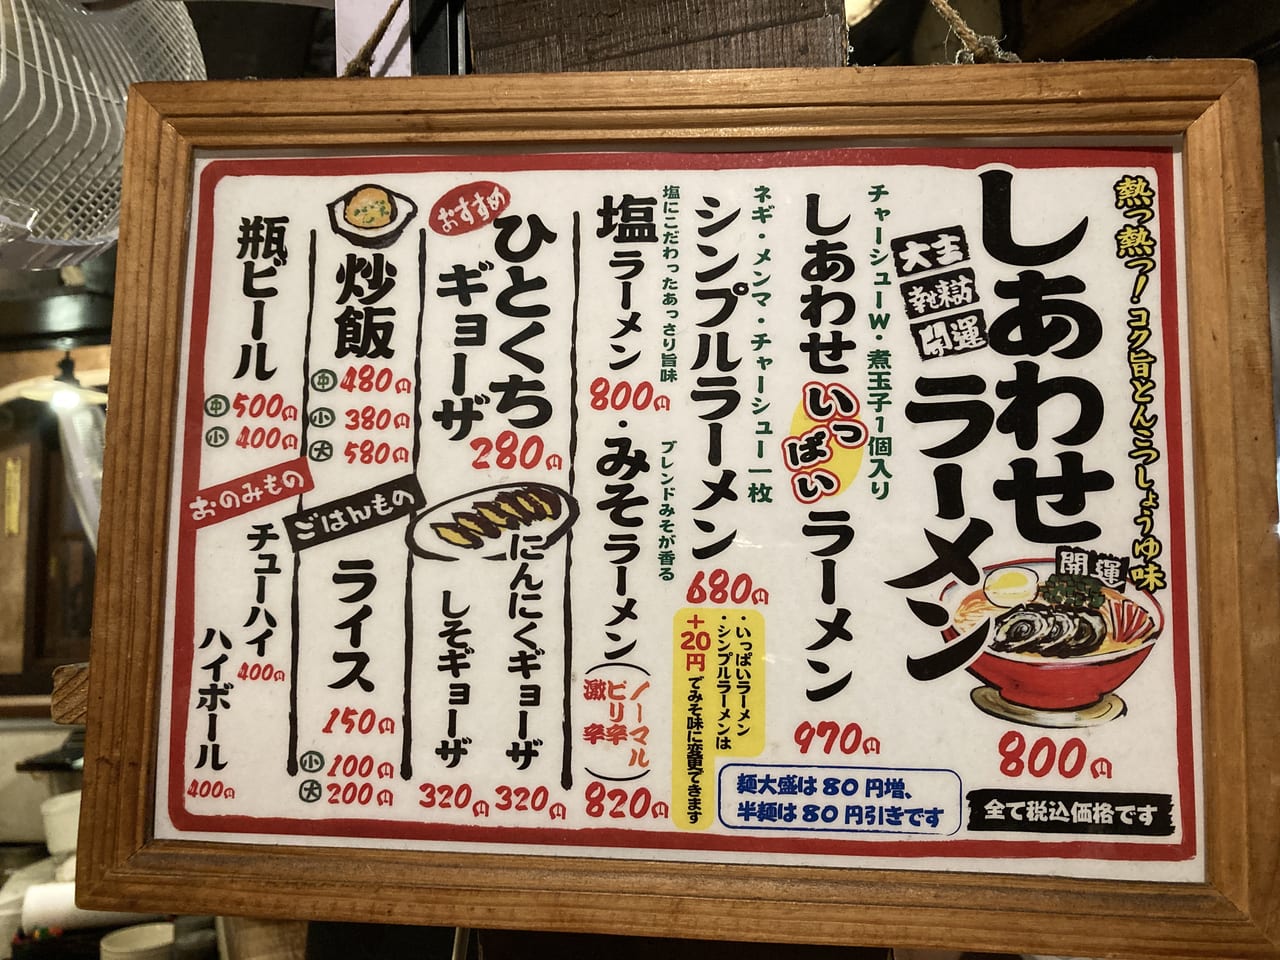 熱っ熱っ!コク旨とんこつしょうゆ味
しあわせ
ラーメン
大吉
開運
開運
800円
全て税込価格です
チャーシューW・煮玉子1個入り
しあわせいっぱいラーメン
970円
麺大盛は80円増、
半麺は80円引きです
ネギ・メンマ・チャーシュー一枚
シンプルラーメン
680円
・いっぱいラーメン
・シンプルラーメンは
+20円でみそ味に変更できます
塩にこだわったあっさり旨味
塩ラーメン
800円
ブレンドみそが香る
・みそラーメン
(ノーマル
ピリ辛
激辛)
820円
おすすめ
ひとくち
ギョーザ
280円
にんにくギョーザ
320円
しそギョーザ
320円
炒飯
中480円
小380円
大580円
ごはんもの
ライス
150円
小100円
大200円
瓶ビール
中500円
小400円
おのみもの
チューハイ
400円
ハイボール
400円